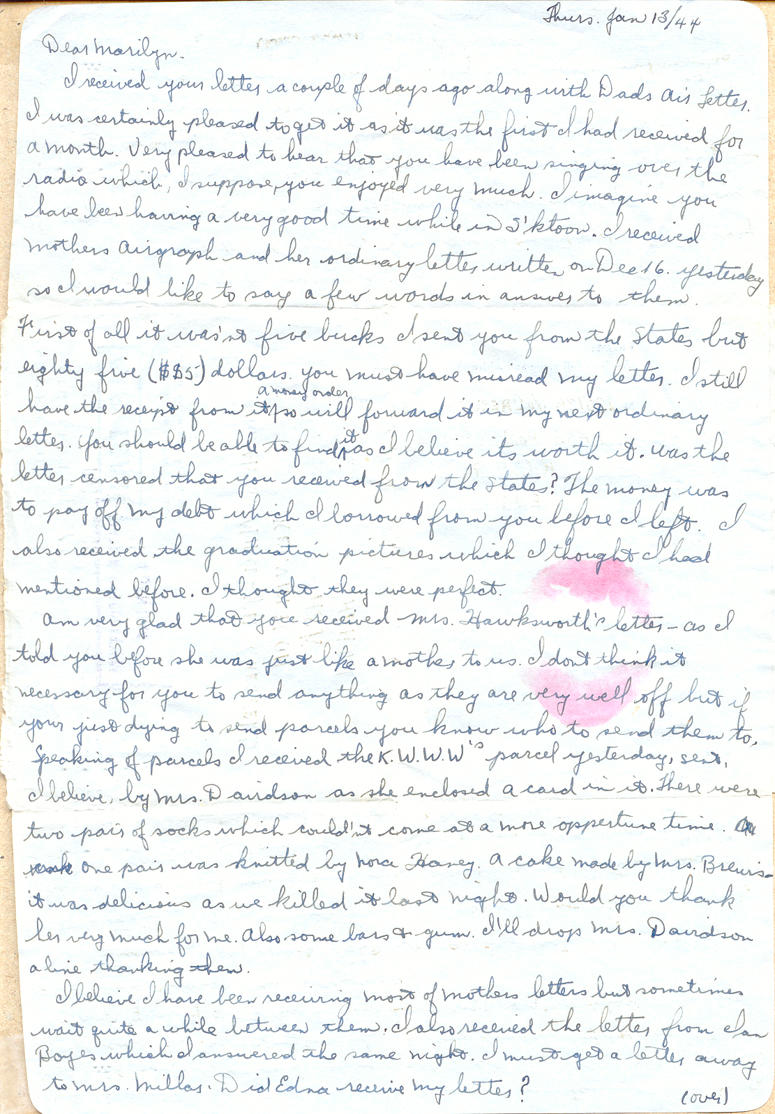 Thurs. Jan 13/44
Dear Marilyn.
I received your letter a couple of days ago along with Dads Air Letter.
I was certainly pleased to get it as it was the first I had received for
a month. Very pleased to hear that you have been singing over the
radio which, I suppose, you enjoyed very much. I imagine you
have been having a very good time while in S'ktoon. I received
Mothers Airgraph and her ordinary letter written on Dec 16. yesterday
so I would like to say a few words in answer to them.
First of all it was'nt five bucks I sent you from the States but
eighty five ($85) dollars. you must have misread my letter. I still
a money order
have the receipt from it so will forward it in my next ordinary
letter. You should be able to find it as I believe its worth it. Was the
letter censored that you received from the States? The money was
to pay off my debt which I borrowed from you before I left. I
also received the graduation pictures which I thought I had
mentioned before. I thought they were perfect.
Am very glad that you've received Mrs. Hawksworth's letter - as I
told you before she was just like a mother to us. I dont think it
necessary for you to send anything as they are very well off but if
your just dying to send parcels you know who to send them to.
Speaking of parcels I received the K.W.W.W's parcel yesterday, sent,
I believe, by Mrs. Davidson as she enclosed a card in it. There were
two pair of socks which could'nt come at a more oppertune time.
one pair was knitted by Nora Haney. A cake made by Mrs. Brews-
it was delicious as we killed it last night. Would you thank
her very much for me. Also some bars & gum. I'll drop Mrs. Davidson
a line thanking them.
I believe I have been receiving most of mothers letters but sometimes
wait quite a while between them. I also received the letter from Ian
Boyes which I answered the same night. I must get a letter away
to Mrs. Millar. Did Edna receive my letter?
(over)